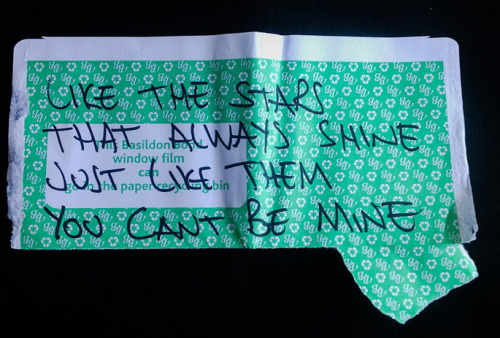 LIKE THE STARS
THAT ALWAYS SHINE
JUST LIKE THEM
YOU CANT BE MINE
Basildon Bond
window film
can
go in the paper recycling bin